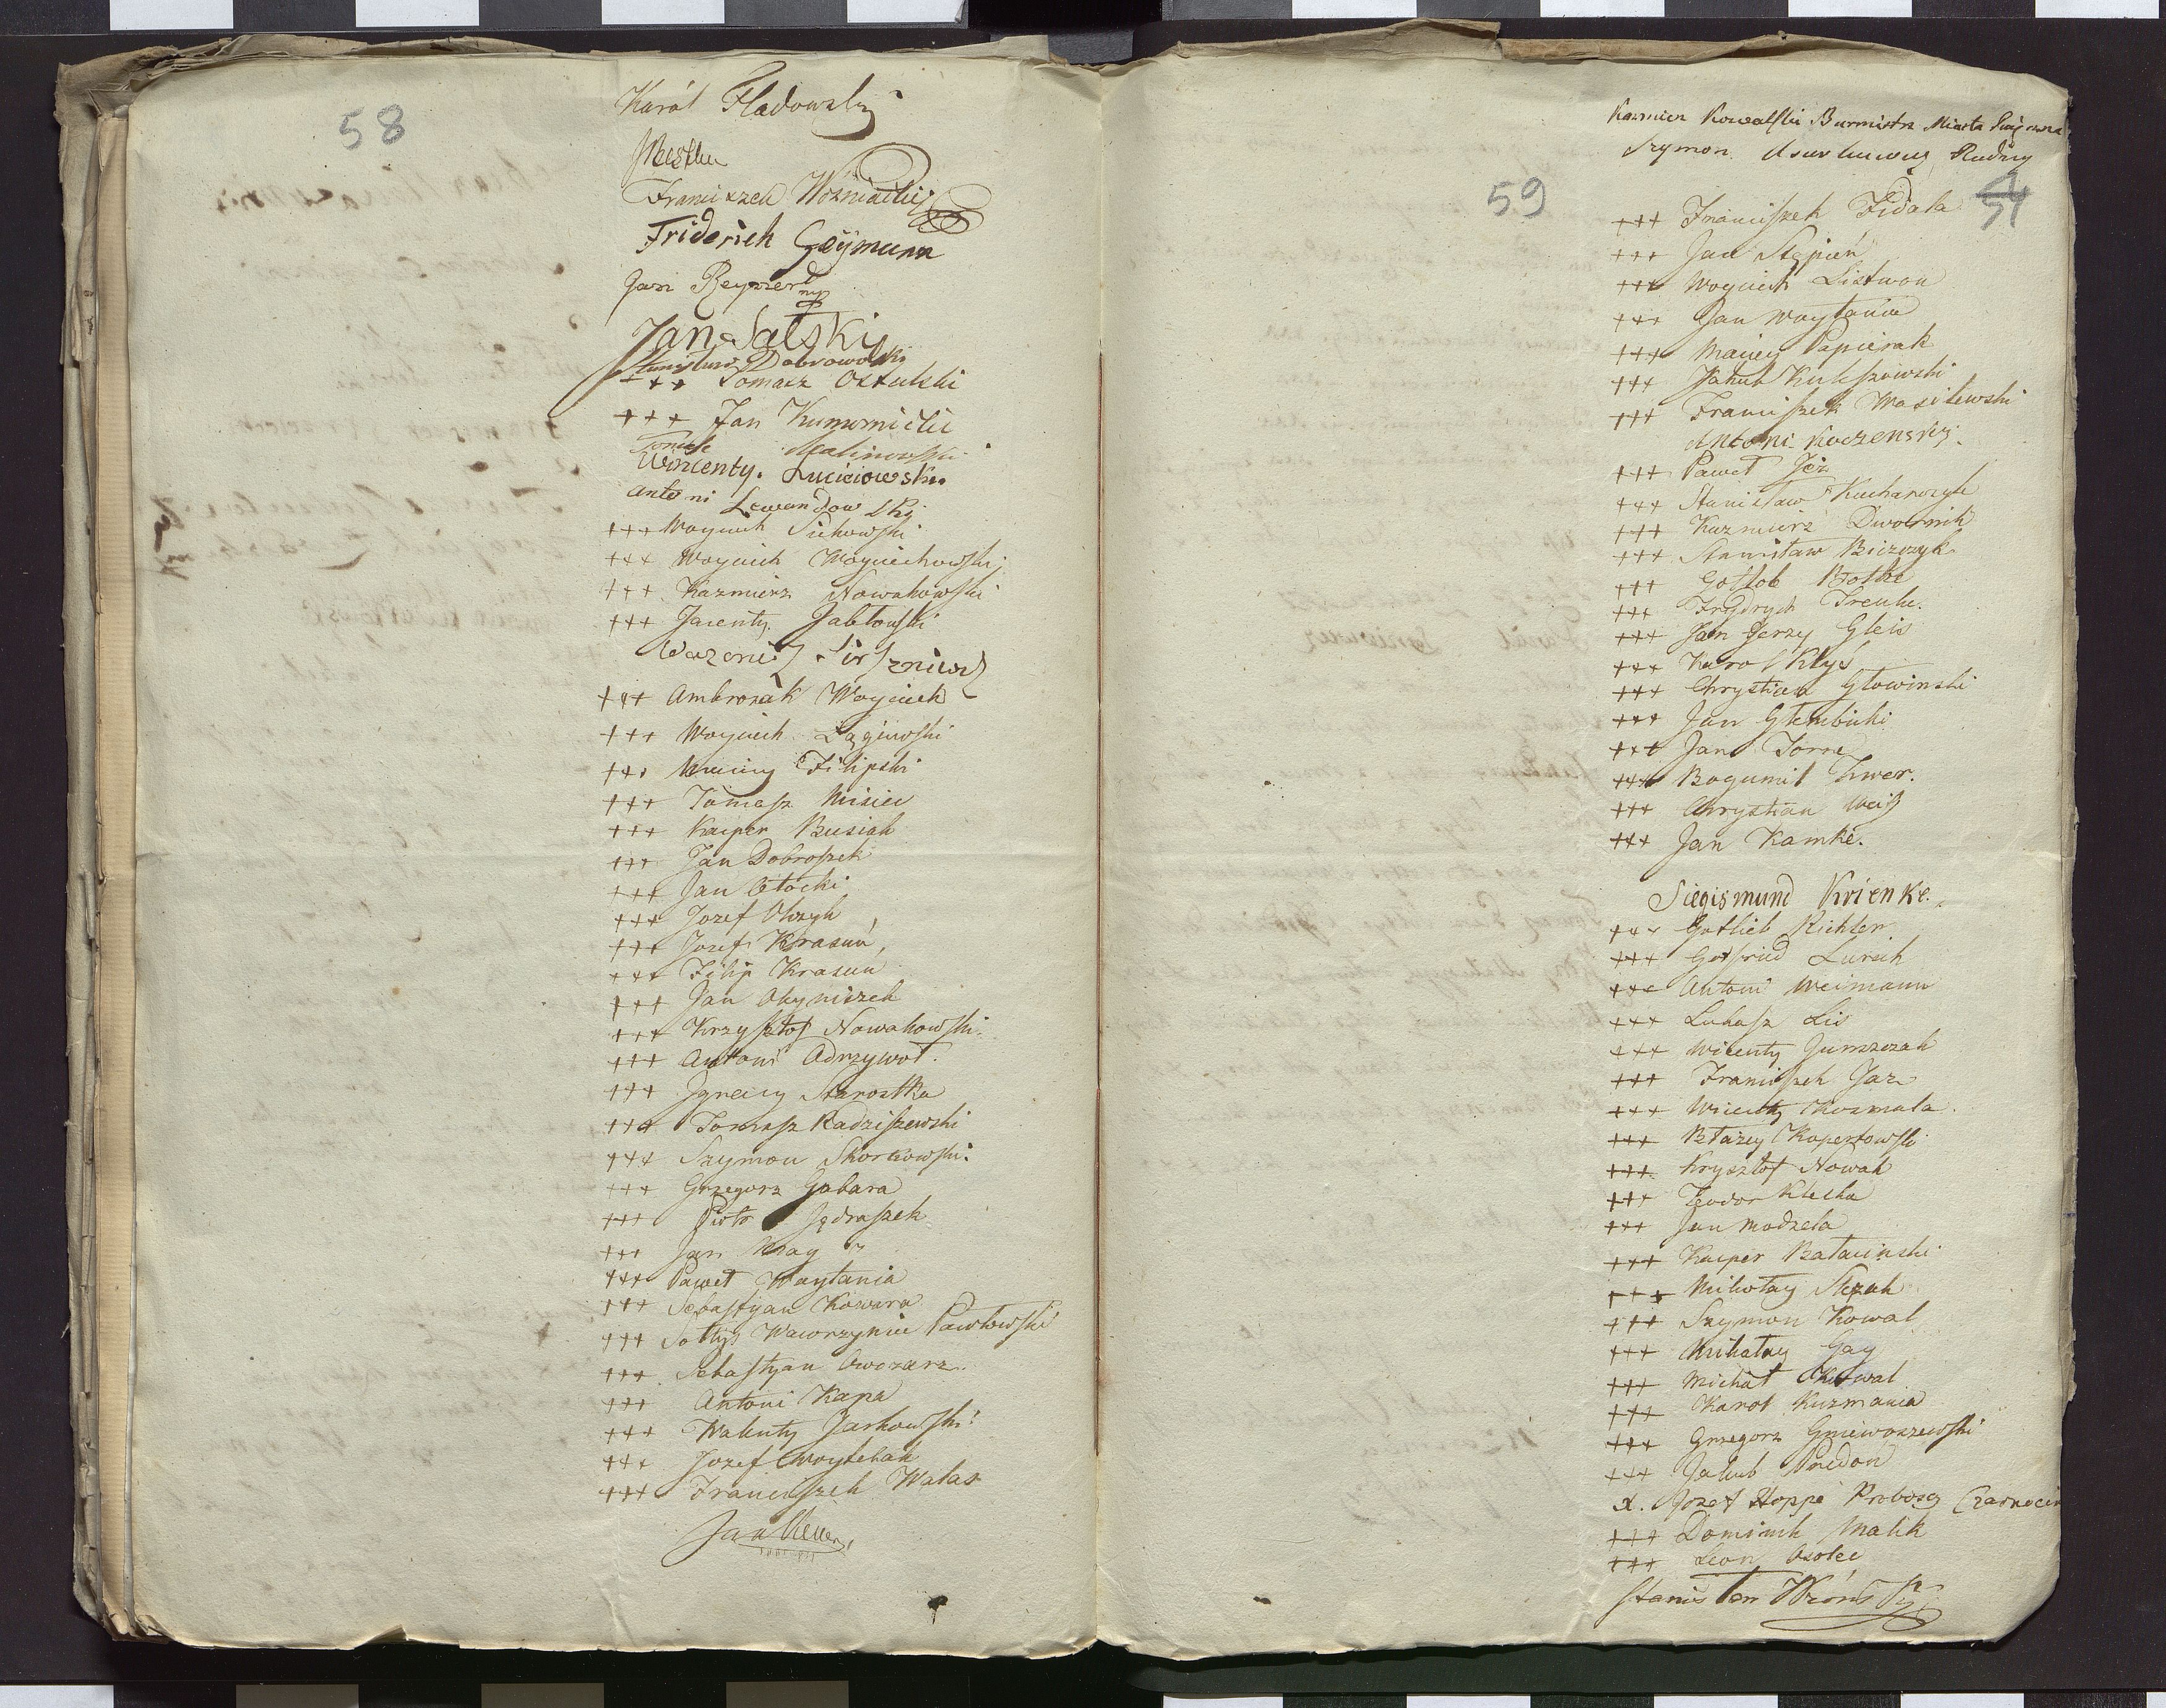 58
Karól Fladowski
Franciszek Woźniacki
Friderich Geÿmunn
Jan Reyzer
Jan Salski
Stanisław Dobrowolski
+++ Tomasz Ostalski
+++ Jan
Malinowski
Wincenty. Luciciowski
Antoni Lewandowski
+++ Woyciech Sikowski
+++ Woyciech Woyciechowski
+++ Kazmierz Nowakowski
+++ Jacenty Jabłoński
+++ Ambroziak Woyciech
+++ Woyciech
+++ Maciey Filipski
+++ Tomasz Misiec
+++ Kacper Busiak
+++ Jan Dobroszek
+++ Jan Cłocki
+++ Jozef Olszyk
+++ Jozef Krasuń,
+++ Filip Krasuń
+++ Jan
+++ Krzysztof Nowakowski.
+++ Antoni Odrzywoł.
+++ Jgnacy Starostka
+++ Tomasz Radziszewski
+++ Szymon Skorkowski.
+++ Grzegorz Gabara
+++ Piotr Jędraszek
+++ Jan
+++ Paweł Waytania
+++ Sebastyan Kowara
+++ Sołtys Wawrzyniec Pawłowski
+++ Sebastyan Owczarz.
+++ Antoni Kapa
+++ Walenty Jarkowski
+++ Jozef Woytczak
+++ Franciszek Walas
Jan
59
Kazmierz Kowalski Burmistrz Miasta
Szymon Radny
54
+++ Franciszek Fidala
+++ Jan Stępień
+++ Woyciech Listwon
+++ Jan Waytania
+++ Maciey Papierak
+++ Jakub Kuleszowski
+++ Franciszek Wasilewski
Antoni Koczenski.
+++ Paweł Jeż
+++ Stanisław Kucharczyk
+++ Kazmierz Dwornik
+++ Stanisław Biezczyk
+++ Gotlob Bothe
+++ Frydrych Treuke.
+++ Jan Jerzy Gleis
+++ Karol Kłyś
+++ Chrystian Głowinski
+++ Jan Głembicki
+++ Jan Torn
+++ Bogumił Zwer.
+++ Chrystian Weiß
+++ Jan Kamke.
Siegismund Krienke.
+++ Gotlieb Richter
+++ Gotfried Lursch
+++ Antoni Weimann
+++ Lukasz Lis
+++ Wicenty Gurszczak
+++ Franciszek Jaz
+++ Wicenty Kozmala.
+++ Błazey Kopertowski
+++ Krysztof Nowak
+++ Teodor Klecha
+++ Jan Modzela
+++ Kacper Bałacinski
+++ Mikołay
+++ Szymon Kowal
+++ Mikołay Gay
+++ Michał Kowal
+++ Karol Kuzmania
+++ Grzegorz Gniewoszewski
+++ Jakub Predoń
X. Jozef Hoppe Proboszcz Czarnocin
+++ Dominik Malik
+++ Leon Osolec
Stanisław Wronski